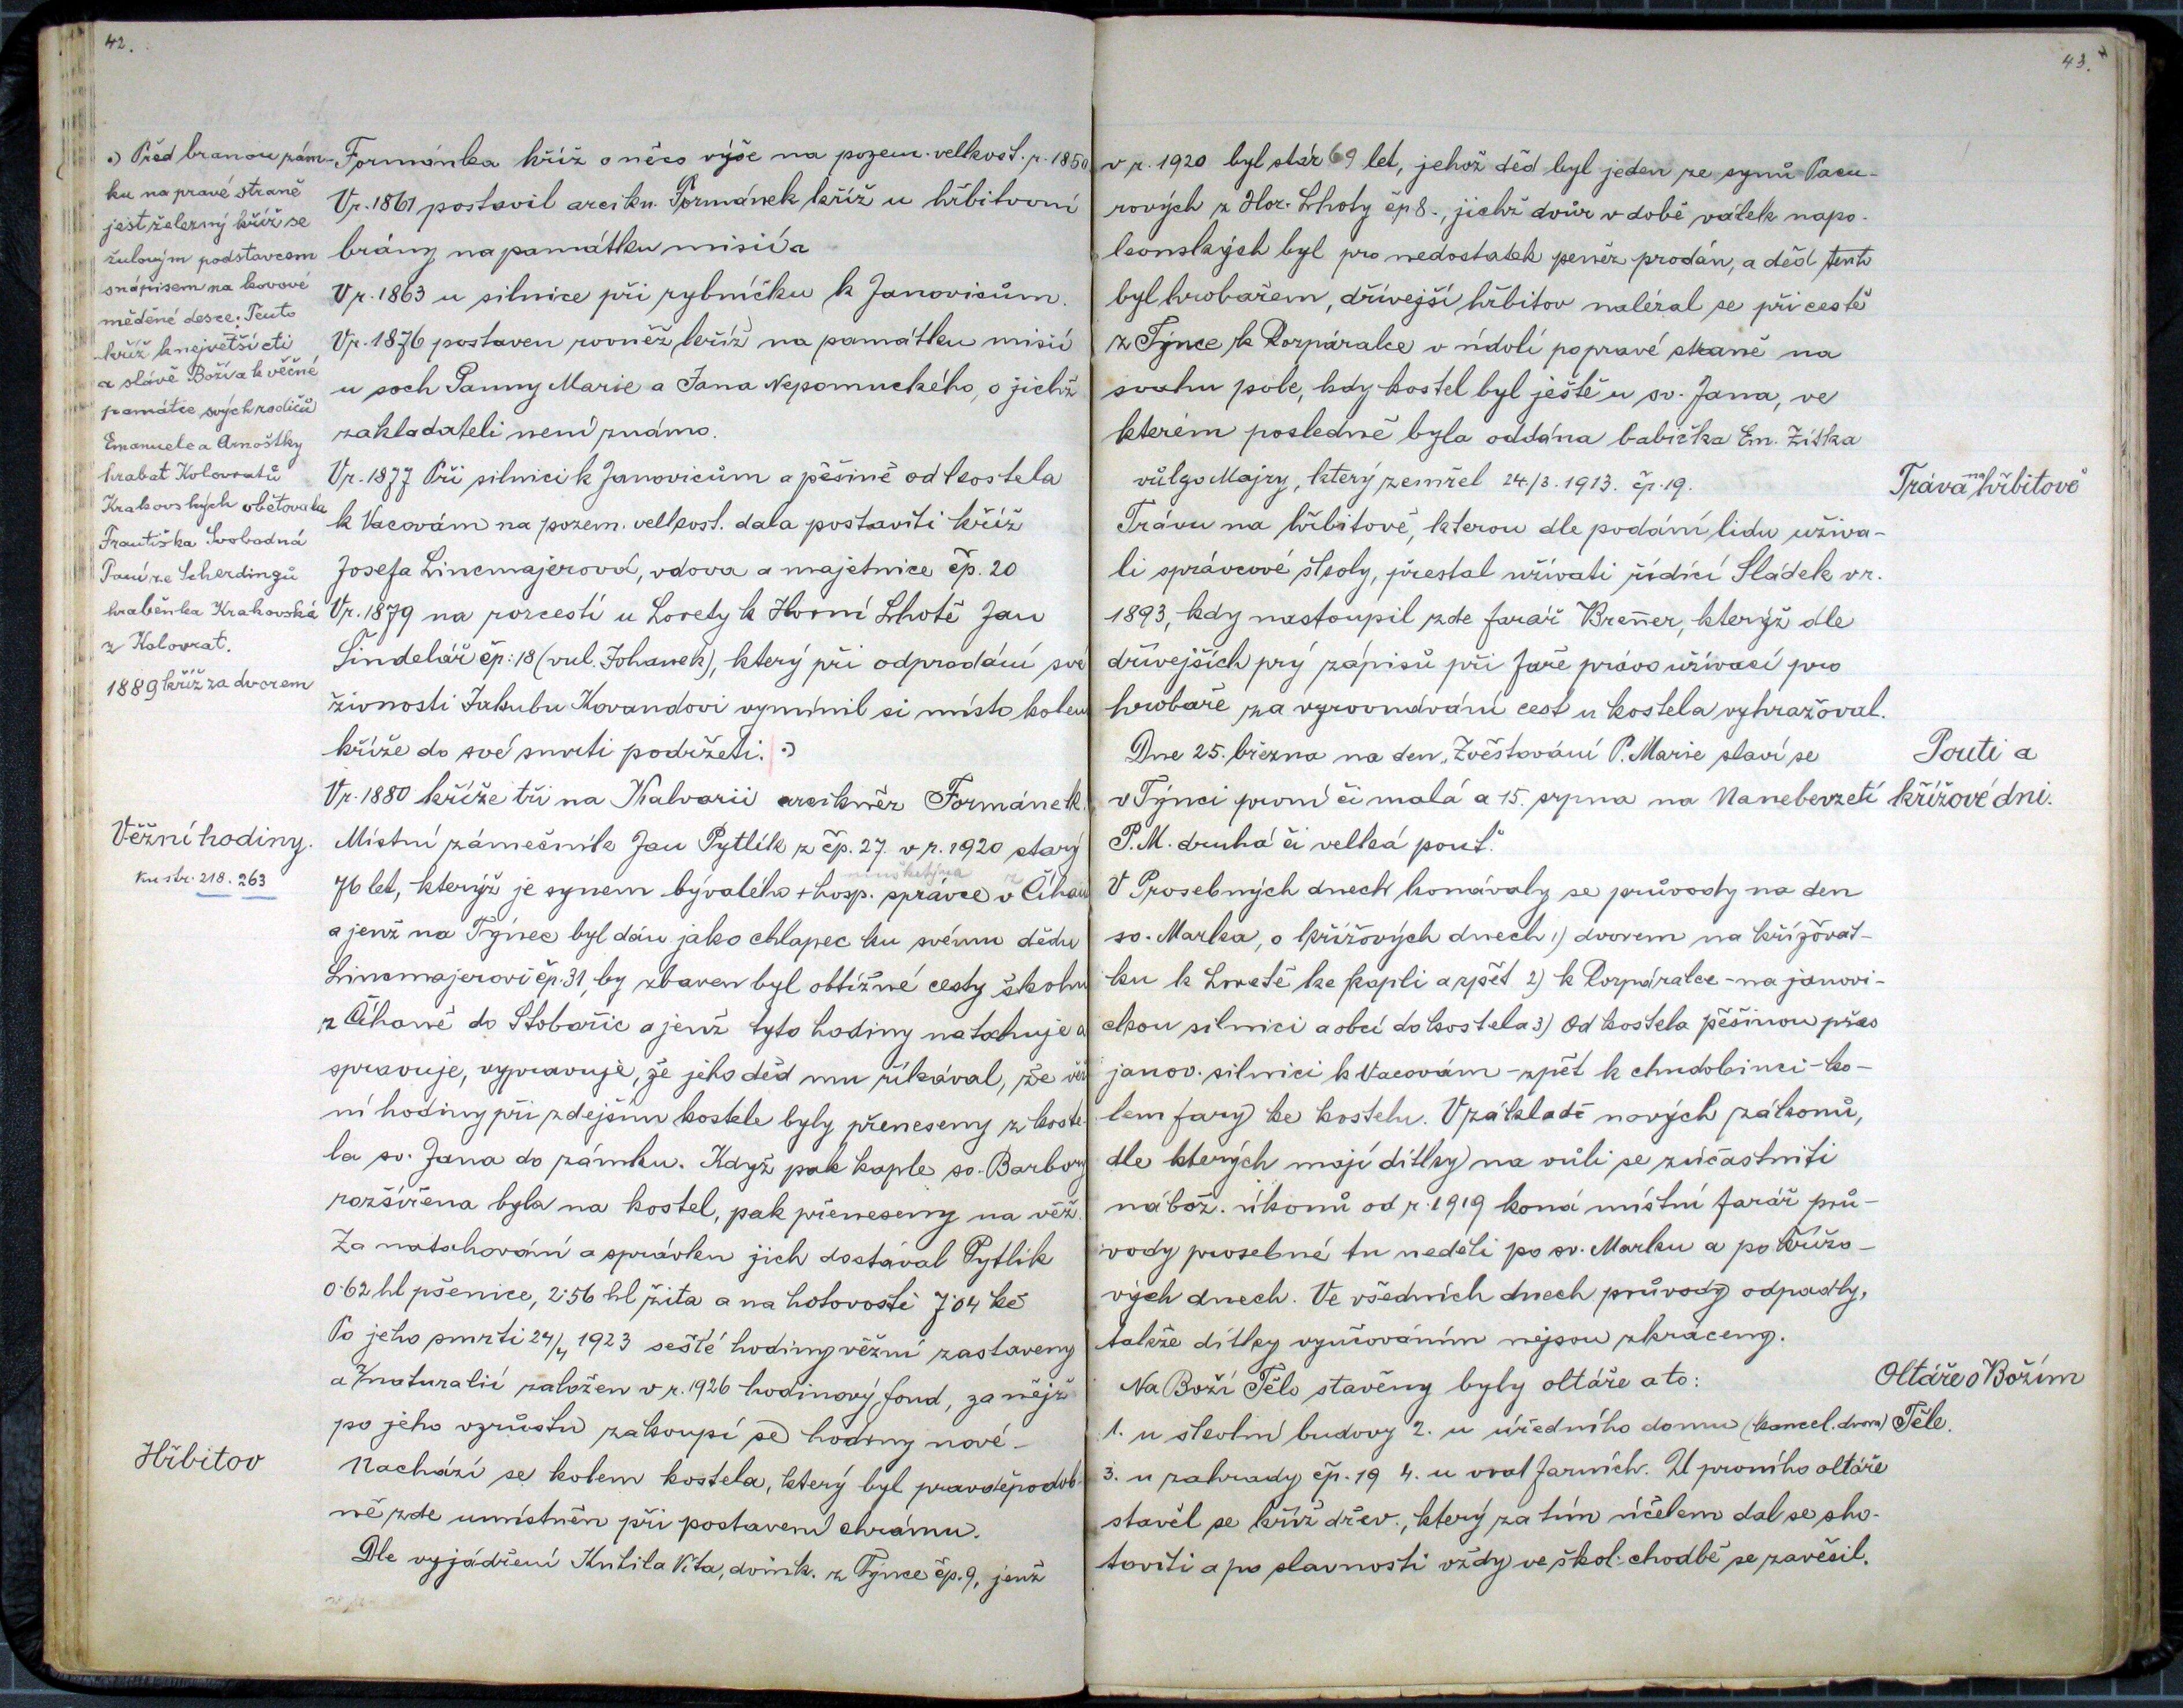 42.
•) Před branou zám-
ku na pravé straně
jest železný kříž se
žulovým podstavcem
s nápisem na kovové
měděné desce: Tento
kříž k největší cti
a slávě Boží a k věčné
památce svých rodičů
Emanuele a Arnoštky
hrabat Kolovratů
Krakovských obětovala
Františka Svobodná
Paní ze Scherdingů
hraběnka Krakovská
z Kolovrat.
1889 kříž za dvorem
Věžní hodiny.
Ku str. 218. 263
Hřbitov
Formánka kříž o něco výše na pozem. velkost. r. 1850
V r. 1861 postavil arcikn. Formánek kříž u hřbitovní
brány na památku misií a
V r. 1863 u silnice při rybníčku k Janovicům.
V r. 1876 postaven rovněž kříž na památku misií
u soch Panny Marie a Jana Nepomuckého, o jichž
zakladateli není známo.
V r. 1877 Při silnici k Janovicům a pěšině od kostela
k Vacovám na pozem. velkost. dala postaviti kříž
Josefa Lincmajerová, vdova a majetnice čp. 20
V r. 1879 na rozcestí u Lorety k Horní Lhotě Jan
Šindelář čp: 18 (vul. Johanek), který při odprodání své
živnosti Jakubu Kovandovi vymínil si místo kolem
kříže do své smrti podržeti. •)
V r. 1880 kříže tři na Kalvarii arcikněz Formánek.
Místní zámečník Jan Pytlík z čp. 27. v r. 1920 starý
76 let, kterýž je synem bývalého + hosp. správce v Číhani
a jenž na Týnec byl dán jako chlapec ku svému dědu
Lincmajerovi čp. 31, by zbaven byl obtížné cesty školní
z Číhaně do Stobořic a jenž tyto hodiny natahuje a
spravuje, vypravuje, že jeho děd mu říkával, že věž
ní hodiny při zdejším kostele byly přeneseny z koste-
la sv. Jana do zámku. Když pak kaple sv. Barbory
rozšířena byla na kostel, pak přeneseny na věž.
Za natahování a správku jich dostával Pytlík
0·62 hl pšenice, 2·56 hl žita a na hotovosti 7·04 kč
Po jeho smrti 24/4 1923 sešlé hodiny věžní zastaveny
a z naturalií založen v r. 1926 hodinový fond, za nějž
po jeho vzrůstu zakoupí se hodiny nové –
Nachází se kolem kostela, který byl pravděpodob-
ně zde umístněn při postavení chrámu.
Dle vyjádření Kutila Víta, domk. z Týnce čp. 9, jenž
43.
v r. 1920 byl stár 69 let, jehož děd byl jeden ze synů Pacu-
rových z Hor. Lhoty čp 8., jichž dvůr v době válek napo-
leonských byl pro nedostatek peněz prodán, a děd tento
byl hrobařem, dřívější hřbitov nalézal se při cestě
z Týnce k Rozpáralce v údolí po pravé straně na
svahu pole, kdy kostel byl ještě u sv. Jana, ve
kterém posledně byla oddána babička Em. Žitka
vůlgo Majry, který zemřel 24./3. 1913. čp. 19.
Trávu na hřbitově, kterou dle podání lidu užíva-
li správcové školy, přestal užívati řídící Sládek v r.
1893, kdy nastoupil zde farář Brenner, kterýž dle
dřívejších prý zápisů při faře právo užívací pro
hrobaře za vyrovnávání cest u kostela vyhražoval.
Dne 25. března na den „Zvěstování P. Marie slaví se
v Týnci první či malá a 15. srpna na Nanebevzetí
P. M. druhá či velká pouť."
V Prosebných dnech konávaly se průvody na den
sv. Marka, o křížových dnech 1) dvorem na křížovat-
ku k Loretě ke kapli a zpět 2) k Rozpáralce – na janovi-
ckou silnici a obcí do kostela 3) Od kostela pěšinou přes
janov. silnici k Vacovám – zpět k chudobinci – ko-
lem fary ke kostelu. V základě nových zákonů,
dle kterých mají dítky na vůli se zúčastniti
nábož. úkonů od r. 1919 koná místní farář prů-
vody prosebné tu neděli po sv. Marku a po křížo-
vých dnech. Ve všedních dnech průvody odpadly,
takže dítky vyučováním nejsou zkráceny.
Na Boží Tělo stavěny byly oltáře a to:
1. u školní budovy 2. u úředního domu (kancel. dvora)
3. u zahrady čp. 19 4. u vrat farních. U prvního oltáře
stavěl se kříž dřev., který za tím účelem dal se zho-
toviti a po slavnosti vždy ve škol. chodbě se zavěsil.
Tráva na hřbitově
Pouti a
křížové dni.
Oltáře o Božím
Těle.